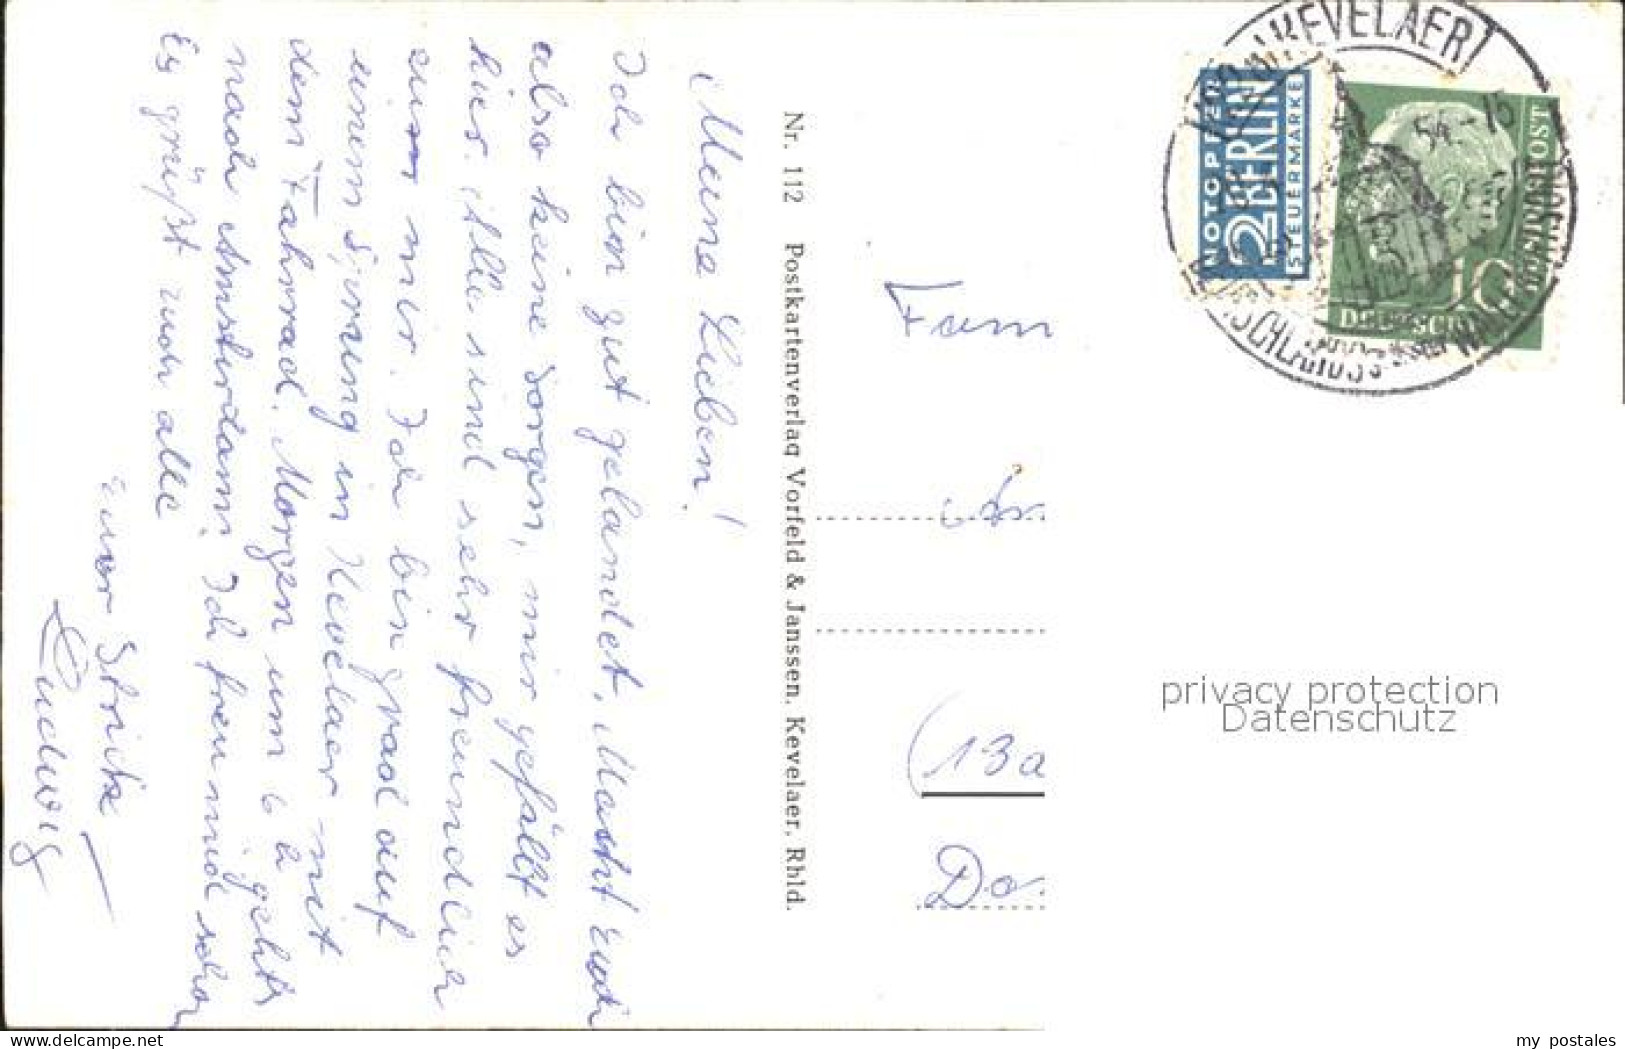 Meine Lieben!
Ich bin gut gelandet. Macht Euch
also keine Sorgen, mir gefällt es
hier. Alle sind sehr freundlich
zu mir. Ich bin grad auf
einem Sprung in Kevelaer mit
dem Fahrrad. Morgen um 6 h geht's
nach Amsterdam. Ich freu mich schon
Es grüßt euch alle
Euer Strick
Ludwig
Nr. 112 Postkartenverlag Vorfeld & Janssen, Kevelaer, Rhld.
KEVELAER
54.-15
NOTOPFER
2 BERLIN
STEUERMARKE
DEUTSCHE
BUNDESPOST
10
Fam
(13a
Do
privacy protection
Datenschutz
delcampe.net
my postales